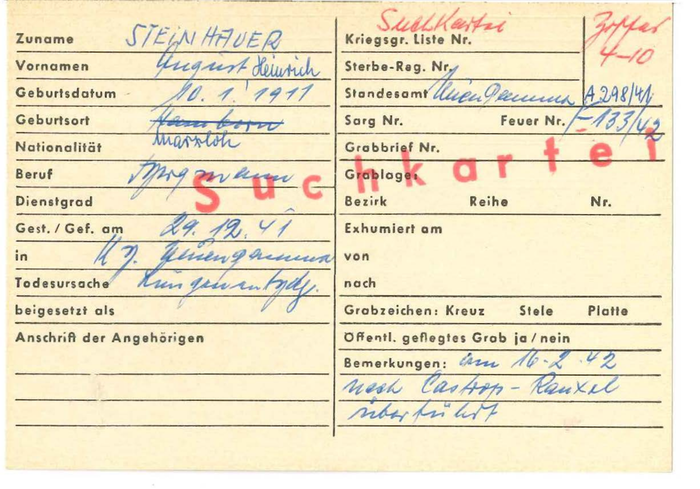 SuchKartei
4-10
Zuname STEINHAUER
Vornamen August Heinrich
Geburtsdatum 10.1.1911
Geburtsort Hamborn
Marxloh
Nationalität
Beruf Bergmann
Dienstgrad
Gest./Gef. am 29.12.41
in KZ. Neuengamme
Todesursache Lungenentzdg.
beigesetzt als
Anschrift der Angehörigen
Kriegsgr. Liste Nr.
Sterbe-Reg. Nr.
Standesamt Neuengamme A 298/41
Sarg Nr. Feuer Nr. 133/42
Grabbrief Nr.
Suchkartei
Grablage:
Bezirk Reihe Nr.
Exhumiert am
von
nach
Grabzeichen: Kreuz Stele Platte
Öffentl. geflegtes Grab ja/nein
Bemerkungen: am 16-2-42
nach Castrop-Rauxel
überführt